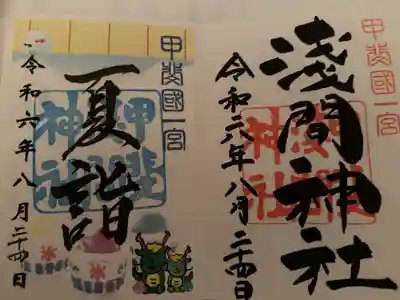 甲斐國一宮
淺間神社
令和六年八月二十四日
甲斐國一宮
夏詣
令和六年八月二十四日
氷
氷